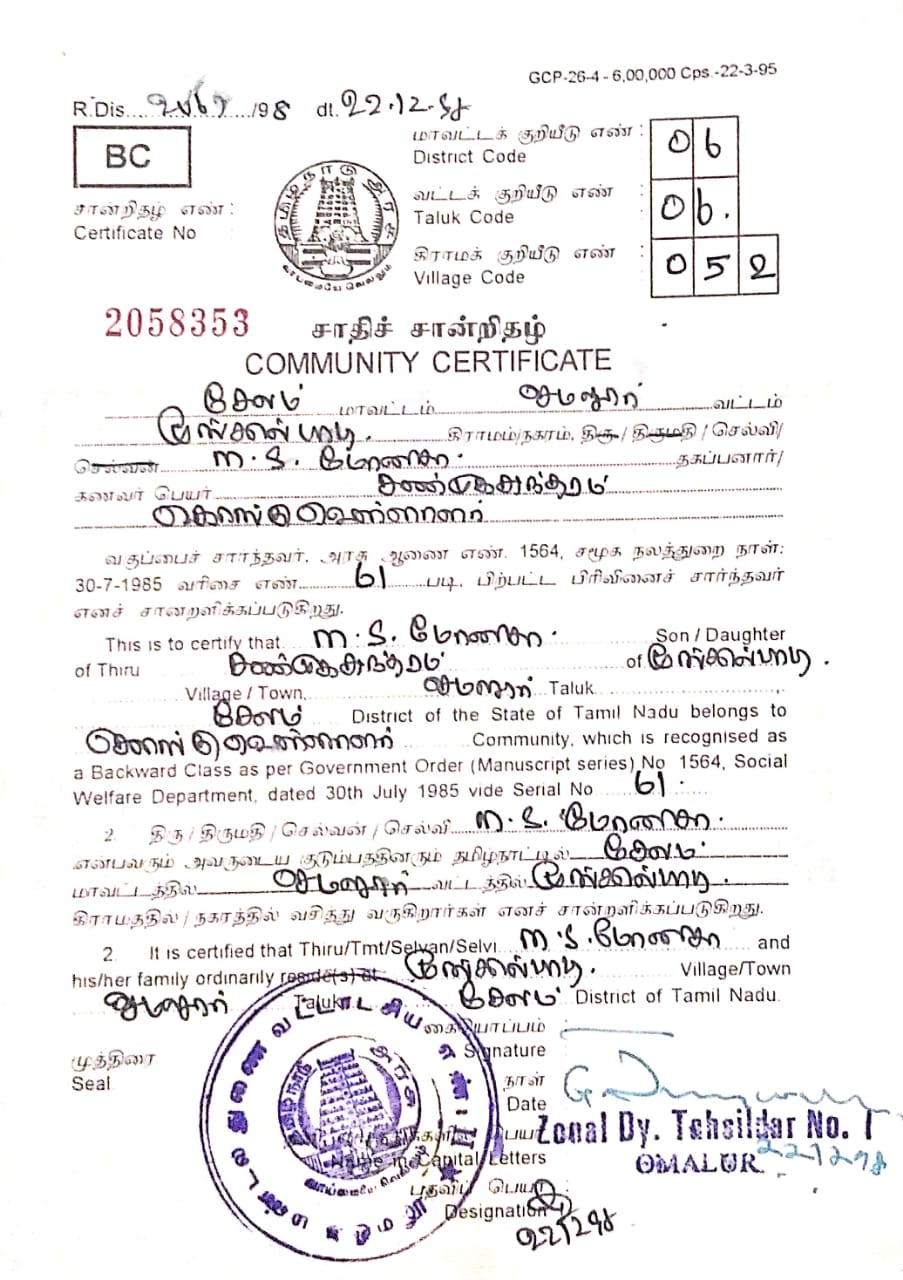 GCP-26-4 - 6,00,000 Cps.-22-3-95
R.Dis. /98 dt. 22.12.98
BC
மாவட்டக் குறியீடு எண் : 06
District Code
வட்டக் குறியீடு எண் : 06.
Taluk Code
கிராமக் குறியீடு எண் : 052
Village Code
சான்றிதழ் எண் :
Certificate No
தமிழ்நாடு அரசு
வாய்மையே வெல்லும்
2058353
சாதிச் சான்றிதழ்
COMMUNITY CERTIFICATE
சேலம் மாவட்டம் ஓமலூர் வட்டம்
கிராமம்/நகரம், திரு / திருமதி / செல்வி/
செல்வன் M. S. மோனிசா. தகப்பனார்/
கணவர் பெயர் சண்முகசுந்தரம்
கொங்கு வெள்ளாளர்
வகுப்பைச் சார்ந்தவர், அரசு ஆணை எண். 1564, சமூக நலத்துறை நாள்:
30-7-1985 வரிசை எண். 61 படி, பிற்பட்ட பிரிவினைச் சார்ந்தவர்
எனச் சான்றளிக்கப்படுகிறது.
This is to certify that M. S. மோனிசா. Son / Daughter
of Thiru சண்முகசுந்தரம் of
Village / Town, ஓமலூர் Taluk
சேலம் District of the State of Tamil Nadu belongs to
கொங்கு வெள்ளாளர் Community, which is recognised as
a Backward Class as per Government Order (Manuscript series) No 1564, Social
Welfare Department, dated 30th July 1985 vide Serial No 61.
2. திரு / திருமதி / செல்வன் / செல்வி M. S. மோனிசா.
என்பவரும் அவருடைய குடும்பத்தினரும் தமிழ்நாட்டில் சேலம்
மாவட்டத்தில் ஓமலூர் வட்டத்தில்
கிராமத்தில் / நகரத்தில் வசித்து வருகிறார்கள் எனச் சான்றளிக்கப்படுகிறது.
2. It is certified that Thiru/Tmt/Selvan/Selvi M. S. மோனிசா and
his/her family ordinarily reside(s) at Village/Town
ஓமலூர் Taluk சேலம் District of Tamil Nadu.
கையொப்பம்
முத்திரை Signature
Seal நாள்
Date
Zonal Dy. Tehsildar No. 1
Name in Capital Letters OMALUR 221298
பதவிப் பெயர்
Designation
221298